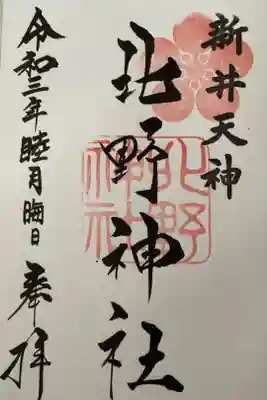 新井天神
北野神社
令和三年睦月晦日
奉拝
北野
神社